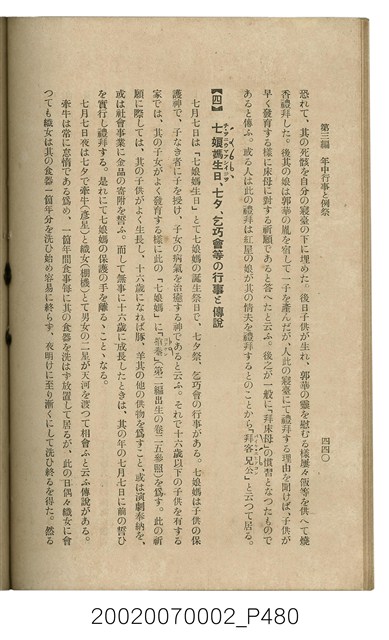 第三編　年中行事と例祭
四四〇
恐れて、其の死骸を自分の寢臺の下に埋めた。後日子供が生れ、郭華の靈を慰むる樣屢々飯等を供へて燒
香禮拜した。後其の娘は郭華の胤を宿して一子を產んだが、人此の寢臺にて禮拜する理由を聞けば、子供が
早く發育する樣に床母に對する祈願であると答へたと云ふ。後之が一般に「拜床母」の慣習となつたもので
あると傳ふ。或る人は此の禮拜は紅屋の娘が其の情夫を禮拜するとのことから、「拜客兄公」と云つて居る。
【四】 七娘媽生日、七夕、乞巧會等の行事と傳說
七月七日は「七娘媽生日」とて七娘媽の誕生祭日で、七夕祭、乞巧會の行事がある。七娘媽は子供の保
護神で、子なき者に子を授け、子女の病氣を治癒する神であると云ふ。それで十六歲以下の子供を有する
家では、其の子女がよく發育する樣に此の「七娘媽」に（第二編出生の卷二五參照）を爲す。此の祈
願に際しては、其の子供がよく生長し、十六歲になれば豚、羊其の他の供物を爲すこと、或は演劇奉納を、
或は社會事業に金品の寄附を誓ふ。而して無事に十六歲に成長したときは、其の年の七月七日に前の誓ひ
を實行し禮拜する。是れにて七娘媽の保護の手を離るゝことゝなる。
七月七日夜は七夕で牽牛（彥星）と織女（棚機）とて男女の二星が天河を渡つて相會ふと云ふ傳說がある。
牽牛は常に怠惰である爲め、一箇年間食事每に其の食器を洗はず放置して居るが、此の日偶々織女に會
つても織女は其の食器一箇年分を洗ひ始め容易に終らず、夜明けに至り漸くにして洗ひ終るを得た。然る
20020070002_P480